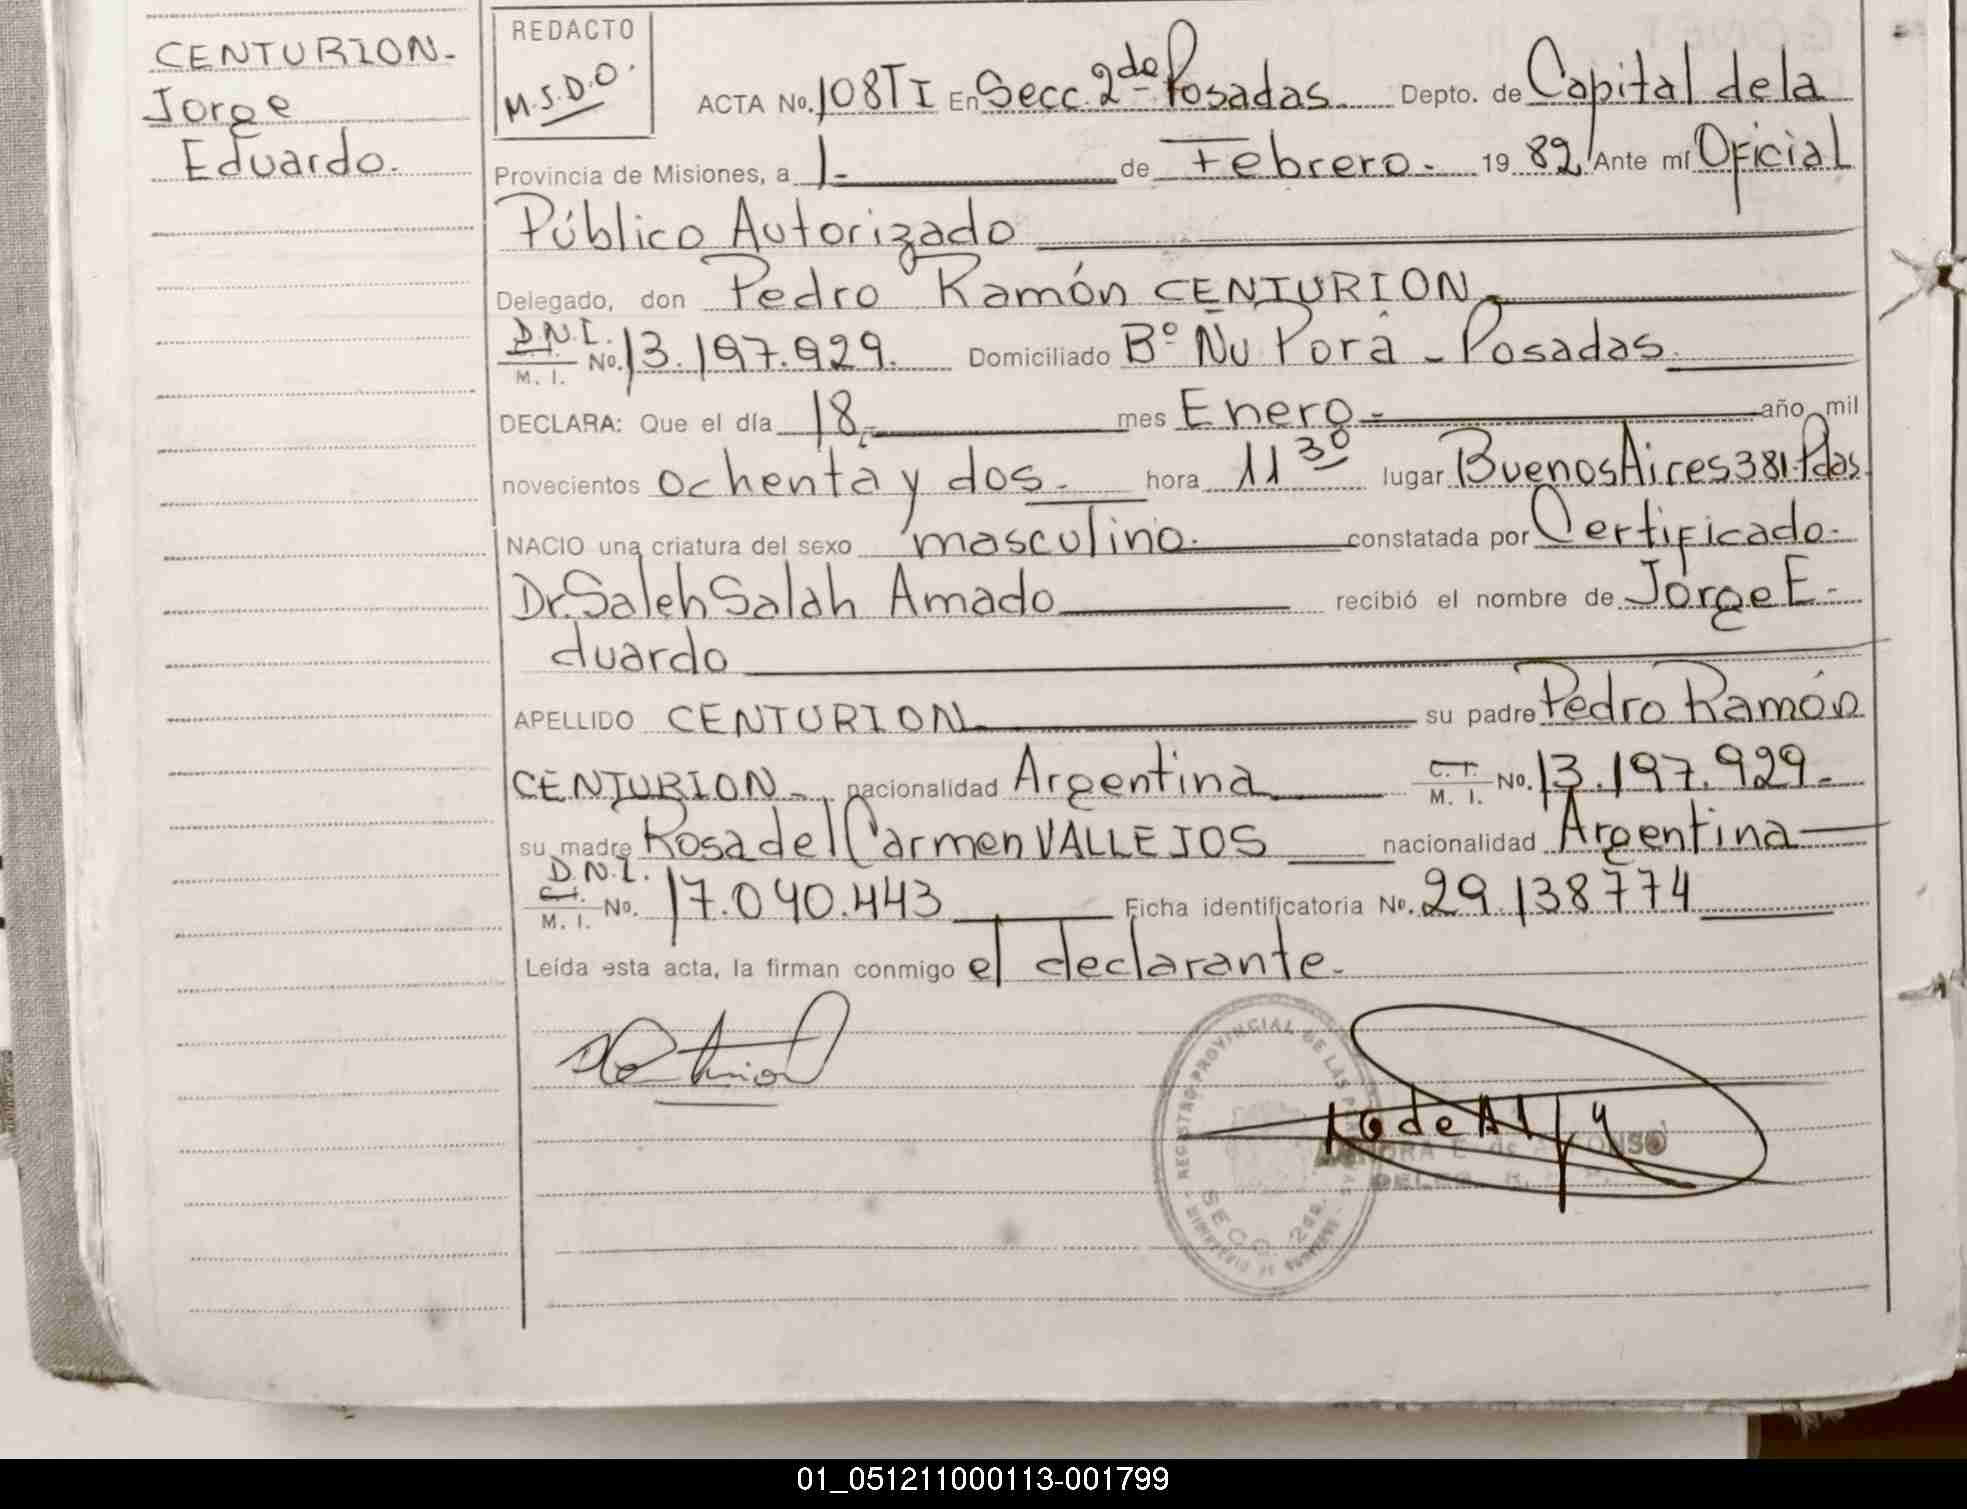 CENTURION-
Jorge
Eduardo.
REDACTO
M.S.D.O.
ACTA No. 108 T I En Secc. 2da Posadas. Depto. de Capital de la
Provincia de Misiones, a 1- de Febrero- 1982, Ante mí Oficial
Público Autorizado
Delegado, don Pedro Ramón CENTURION
D.N.I.
M. I. No. 13.197.929. Domiciliado Bº Ñu Porá - Posadas.
DECLARA: Que el día 18,- mes Enero- año mil
novecientos ochenta y dos- hora 11 30 lugar Buenos Aires 381-Pdas.
NACIO una criatura del sexo masculino. constatada por Certificado-
Dr. Saleh Salah Amado recibió el nombre de Jorge E-
duardo
APELLIDO CENTURION su padre Pedro Ramón
CENTURION- nacionalidad Argentina C. I. M. I. No. 13.197.929-
su madre Rosa del Carmen VALLEJOS nacionalidad Argentina
D.N.I.
C. I. M. I. No. 17.040.443 Ficha identificatoria No. 29.138774
Leída esta acta, la firman conmigo el declarante.
REGISTRO PROVINCIAL DE LAS
SECC. 2da.
MINISTERIO DE GOBIERNO
01_051211000113-001799